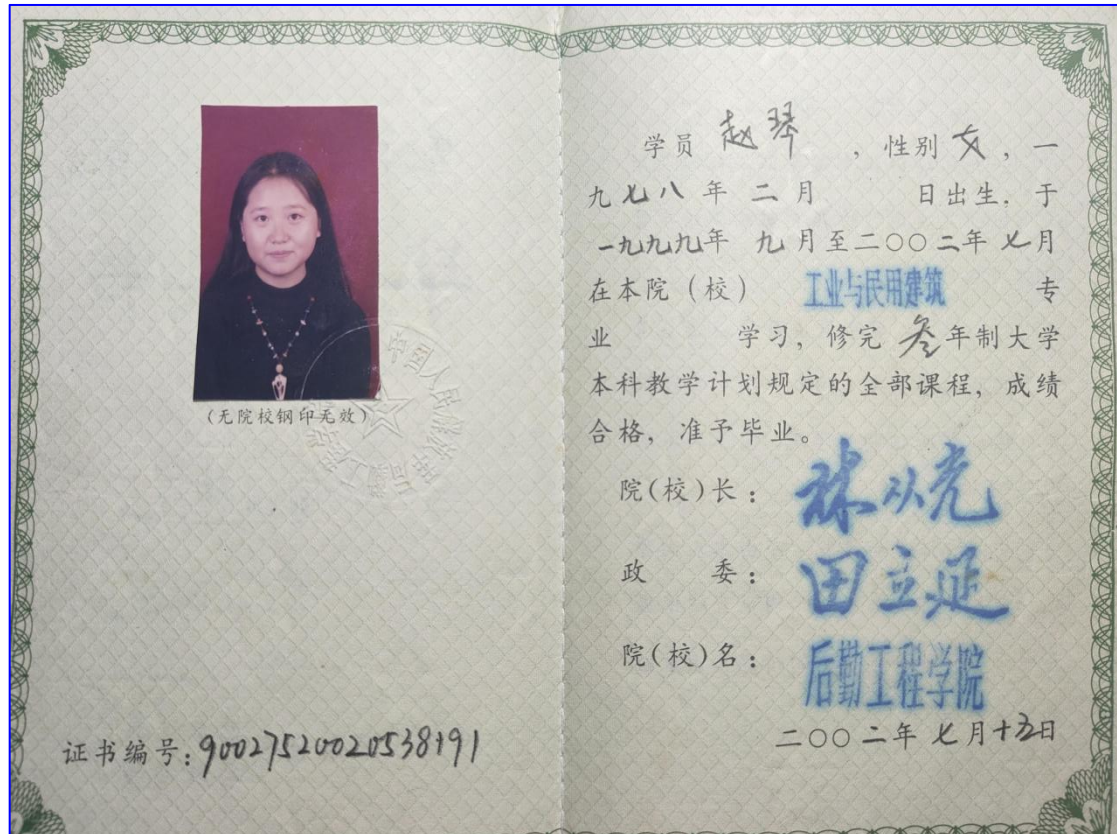 (无院校钢印无效)
证书编号:90027520020538191
学员 赵琴 ,性别 女,一
九七八年 二月 日出生,于
一九九九年 九月至二〇〇二年 七月
在本院(校) 工业与民用建筑 专
业 学习,修完 叁年制大学
本科教学计划规定的全部课程,成绩
合格,准予毕业。
院(校)长:
政 委:田立延
院(校)名:后勤工程学院
二〇〇二年 七月十五日